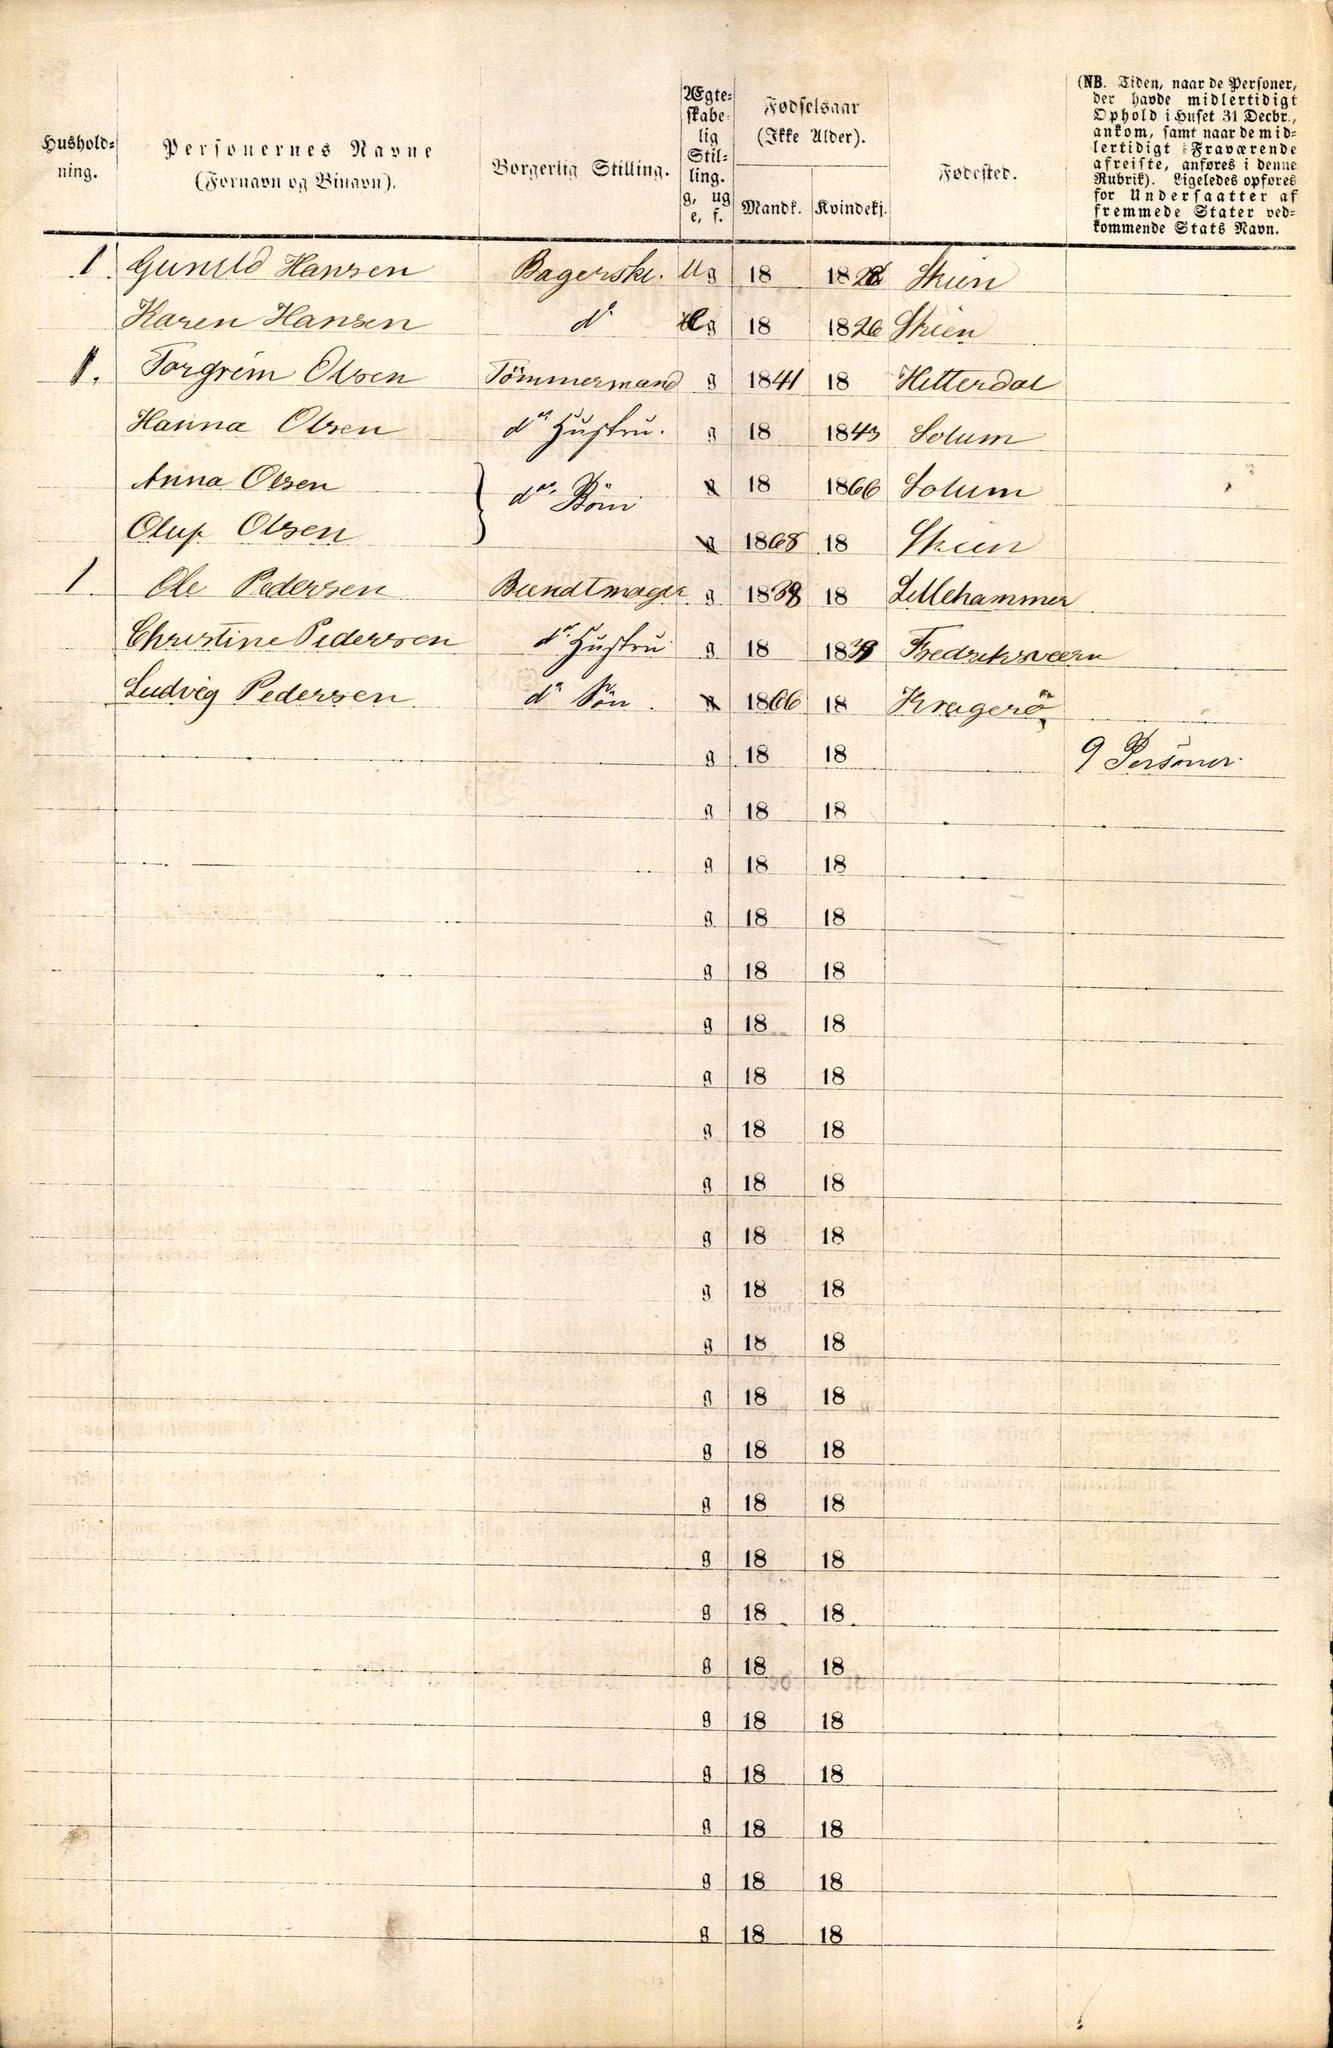 Hushold-
ning.
Personernes Navne
(Fornavn og Binavn).
Borgerlig Stilling.
Ægte-
skabe-
lig
Stil-
ling.
g, ug
e, f.
Fødselsaar
(Ikke Alder).
Mandk. Kvindekj.
Fødested.
(NB. Tiden, naar de Personer,
der havde midlertidigt
Ophold i Huset 31 Decbr.,
ankom, samt naar de mid-
lertidigt Fraværende
afreiste, anføres i denne
Rubrik). Ligeledes opføres
for Undersaatter af
fremmede Stater ved-
kommende Stats Navn.
1 Gunild Hansen Bagerske. Ug 18 18 Skien
Karen Hansen do g 18 1826 Skien
1. Torgrim Olsen Tömmermand g 1841 18 Hitterdal
Hanna Olsen do Hustru. g 18 1843 Solum
Anna Olsen do Börn g 18 1866 Solum
Oluf Olsen g 1868 18 Skien
1. Ole Pedersen Bundtmager g 1838 18 Lillehammer
Christine Pedersen do Hustru g 18 1839 Fredriksværn
Ludvig Pedersen do Sön. g 1866 18 Kragerö
g 18 18 9 Personer.
g 18 18
g 18 18
g 18 18
g 18 18
g 18 18
g 18 18
g 18 18
g 18 18
g 18 18
g 18 18
g 18 18
g 18 18
g 18 18
g 18 18
g 18 18
g 18 18
g 18 18
g 18 18
g 18 18
g 18 18
g 18 18
g 18 18